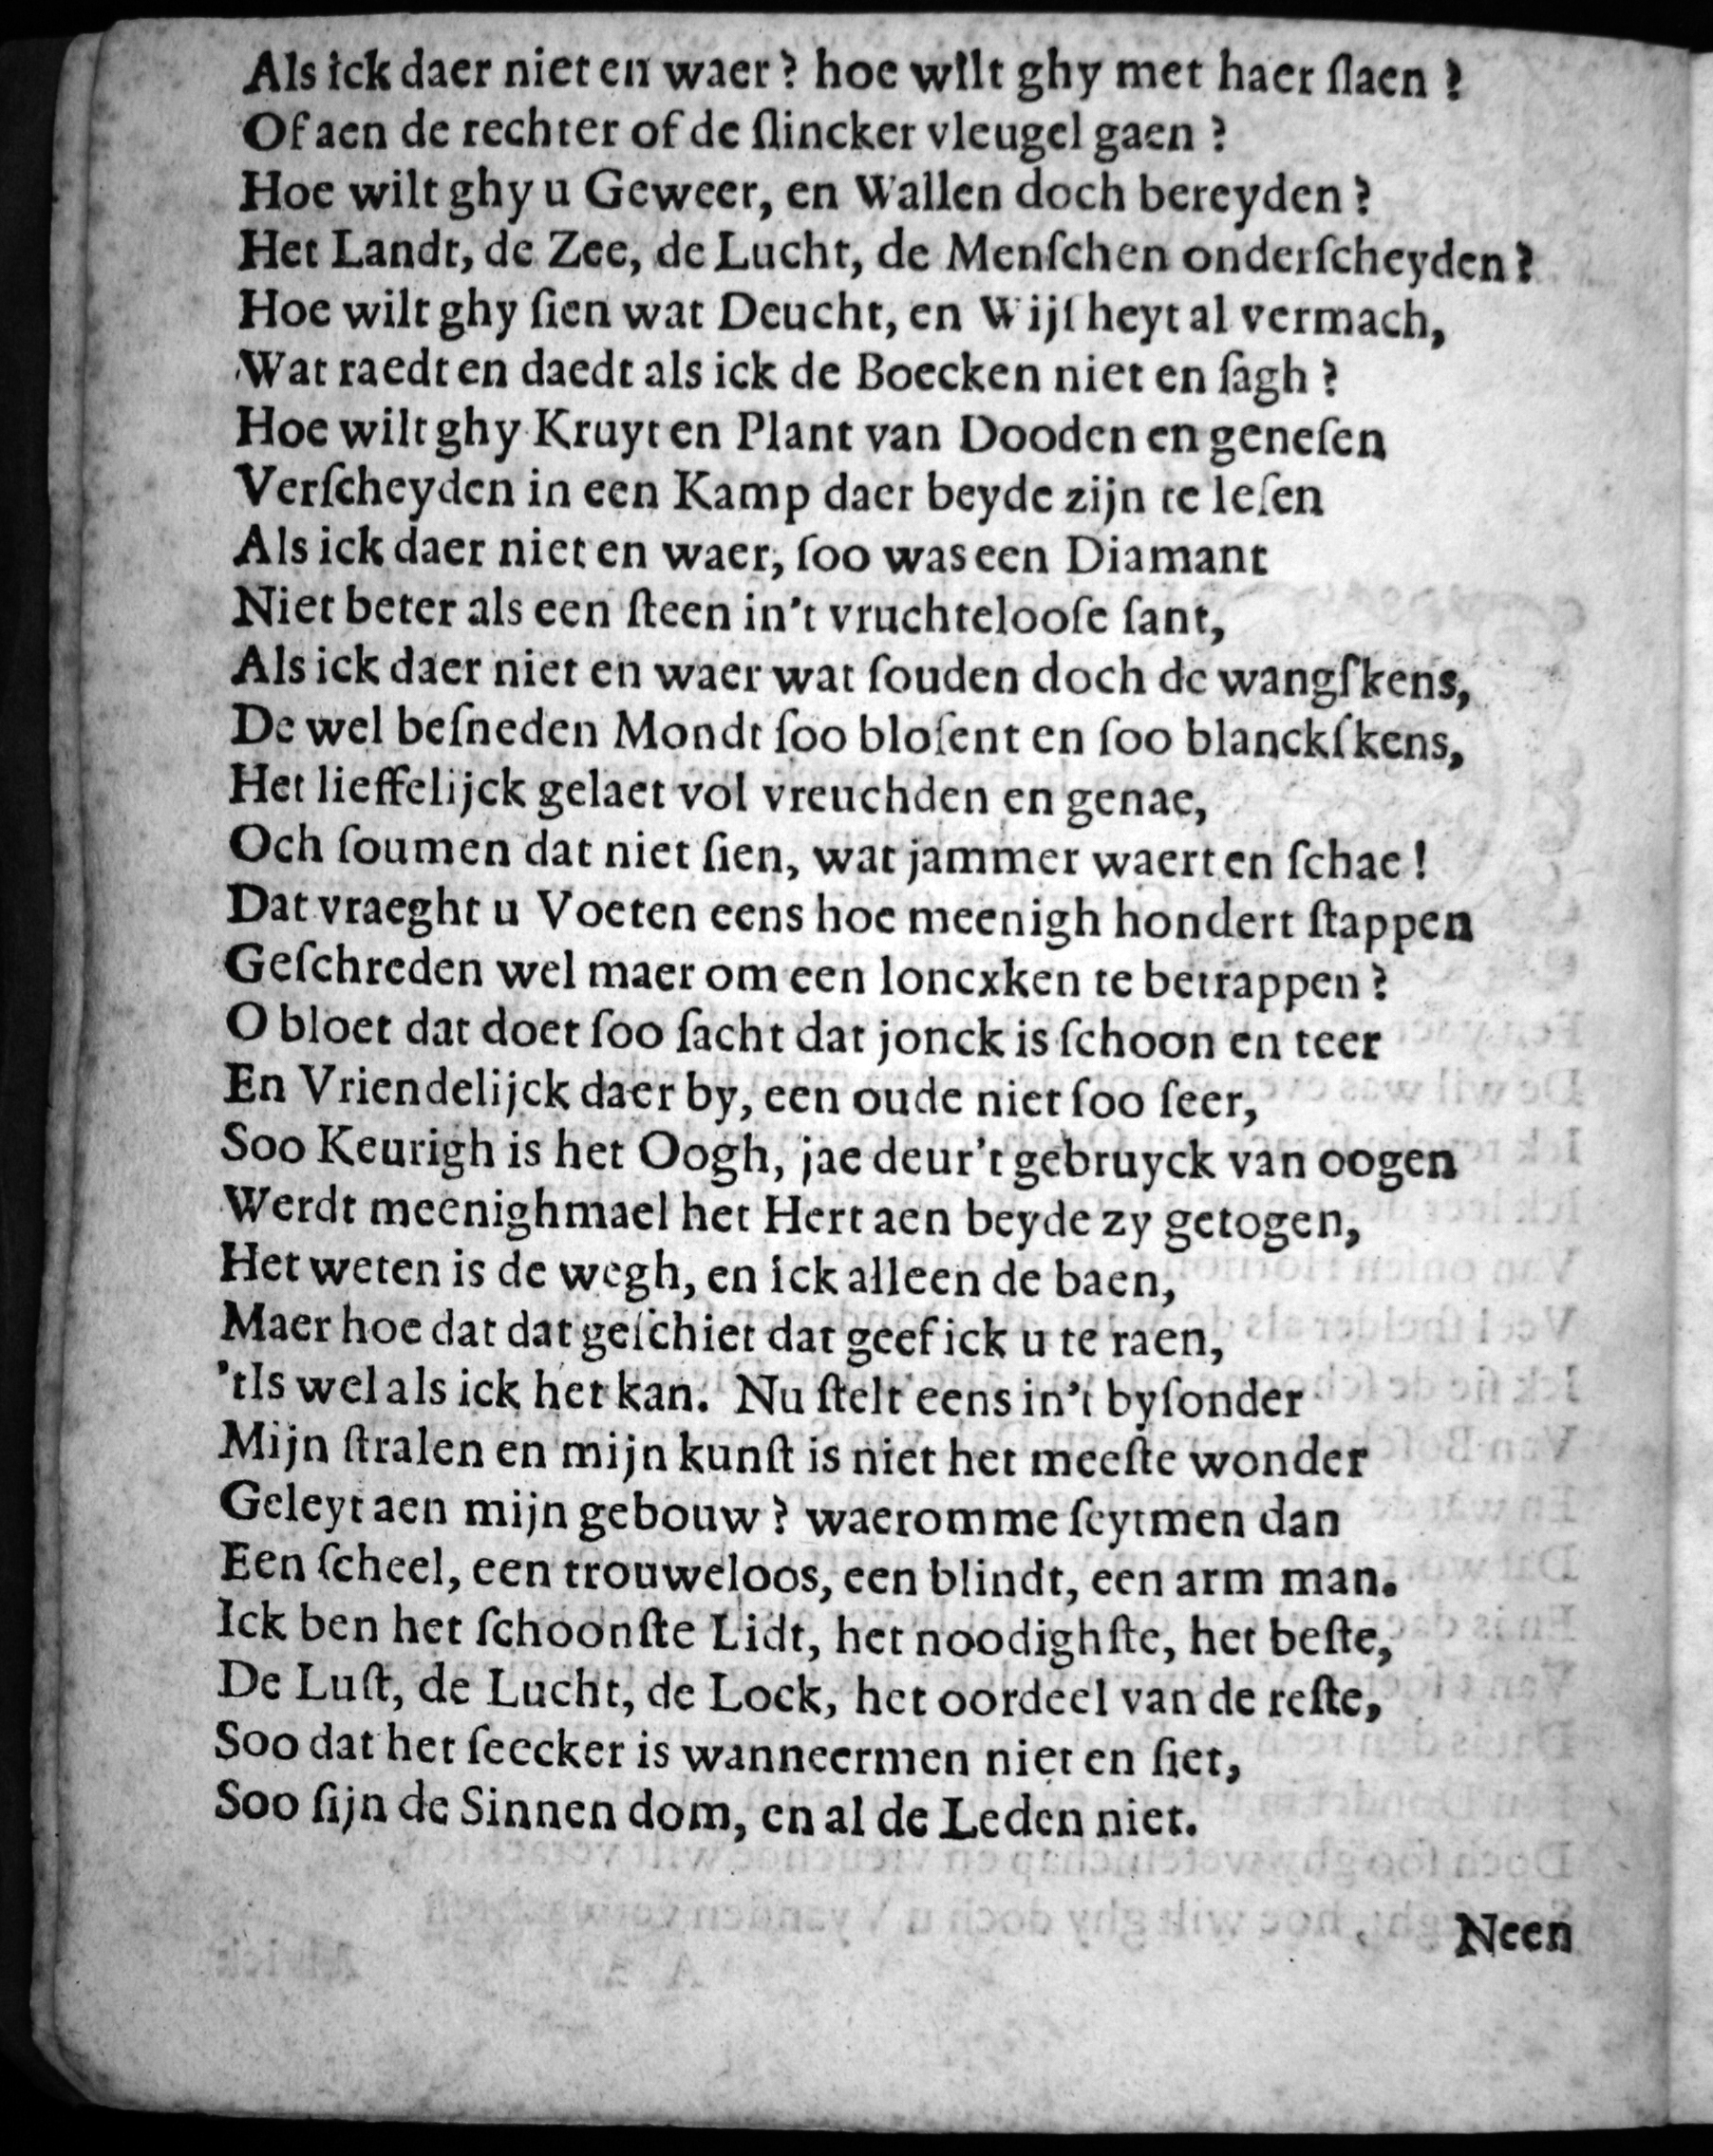 Als ick daer niet en waer? hoe wilt ghy met haer ſlaen?
Of aen de rechter of de ſlincker vleugel gaen?
Hoe wilt ghy u Geweer, en Wallen doch bereyden?
Het Landt, de Zee, de Lucht, de Menſchen onderſcheyden?
Hoe wilt ghy ſien wat Deucht, en Wijſheyt al vermach,
Wat raedt en daedt als ick de Boecken niet en ſagh?
Hoe wilt ghy Kruyt en Plant van Dooden en geneſen
Verſcheyden in een Kamp daer beyde zijn te leſen
Als ick daer niet en waer, ſoo was een Diamant
Niet beter als een ſteen in't vruchtelooſe ſant,
Als ick daer niet en waer wat ſouden doch de wangſkens,
De wel beſneden Mondt ſoo bloſent en ſoo blanckſkens,
Het lieffelijck gelaet vol vreuchden en genae,
Och ſoumen dat niet ſien, wat jammer waert en ſchae!
Dat vraeght u Voeten eens hoe meenigh hondert ſtappen
Geſchreden wel maer om een loncxken te betrappen?
O bloet dat doet ſoo ſacht dat jonck is ſchoon en teer
En Vriendelijck daer by, een oude niet ſoo ſeer,
Soo Keurigh is het Oogh, jae deur't gebruyck van oogen
Werdt meenighmael het Hert aen beyde zy getogen,
Het weten is de wegh, en ick alleen de baen,
Maer hoe dat dat geſchiet dat geef ick u te raen,
'tIs wel als ick het kan. Nu ſtelt eens in't byſonder
Mijn ſtralen en mijn kunſt is niet het meeſte wonder
Geleyt aen mijn gebouw? waeromme ſeytmen dan
Een ſcheel, een trouweloos, een blindt, een arm man.
Ick ben het ſchoonſte Lidt, het noodighſte, het beſte,
De Luſt, de Lucht, de Lock, het oordeel van de reſte,
Soo dat het ſeecker is wanneermen niet en ſiet,
Soo ſijn de Sinnen dom, en al de Leden niet.
Neen